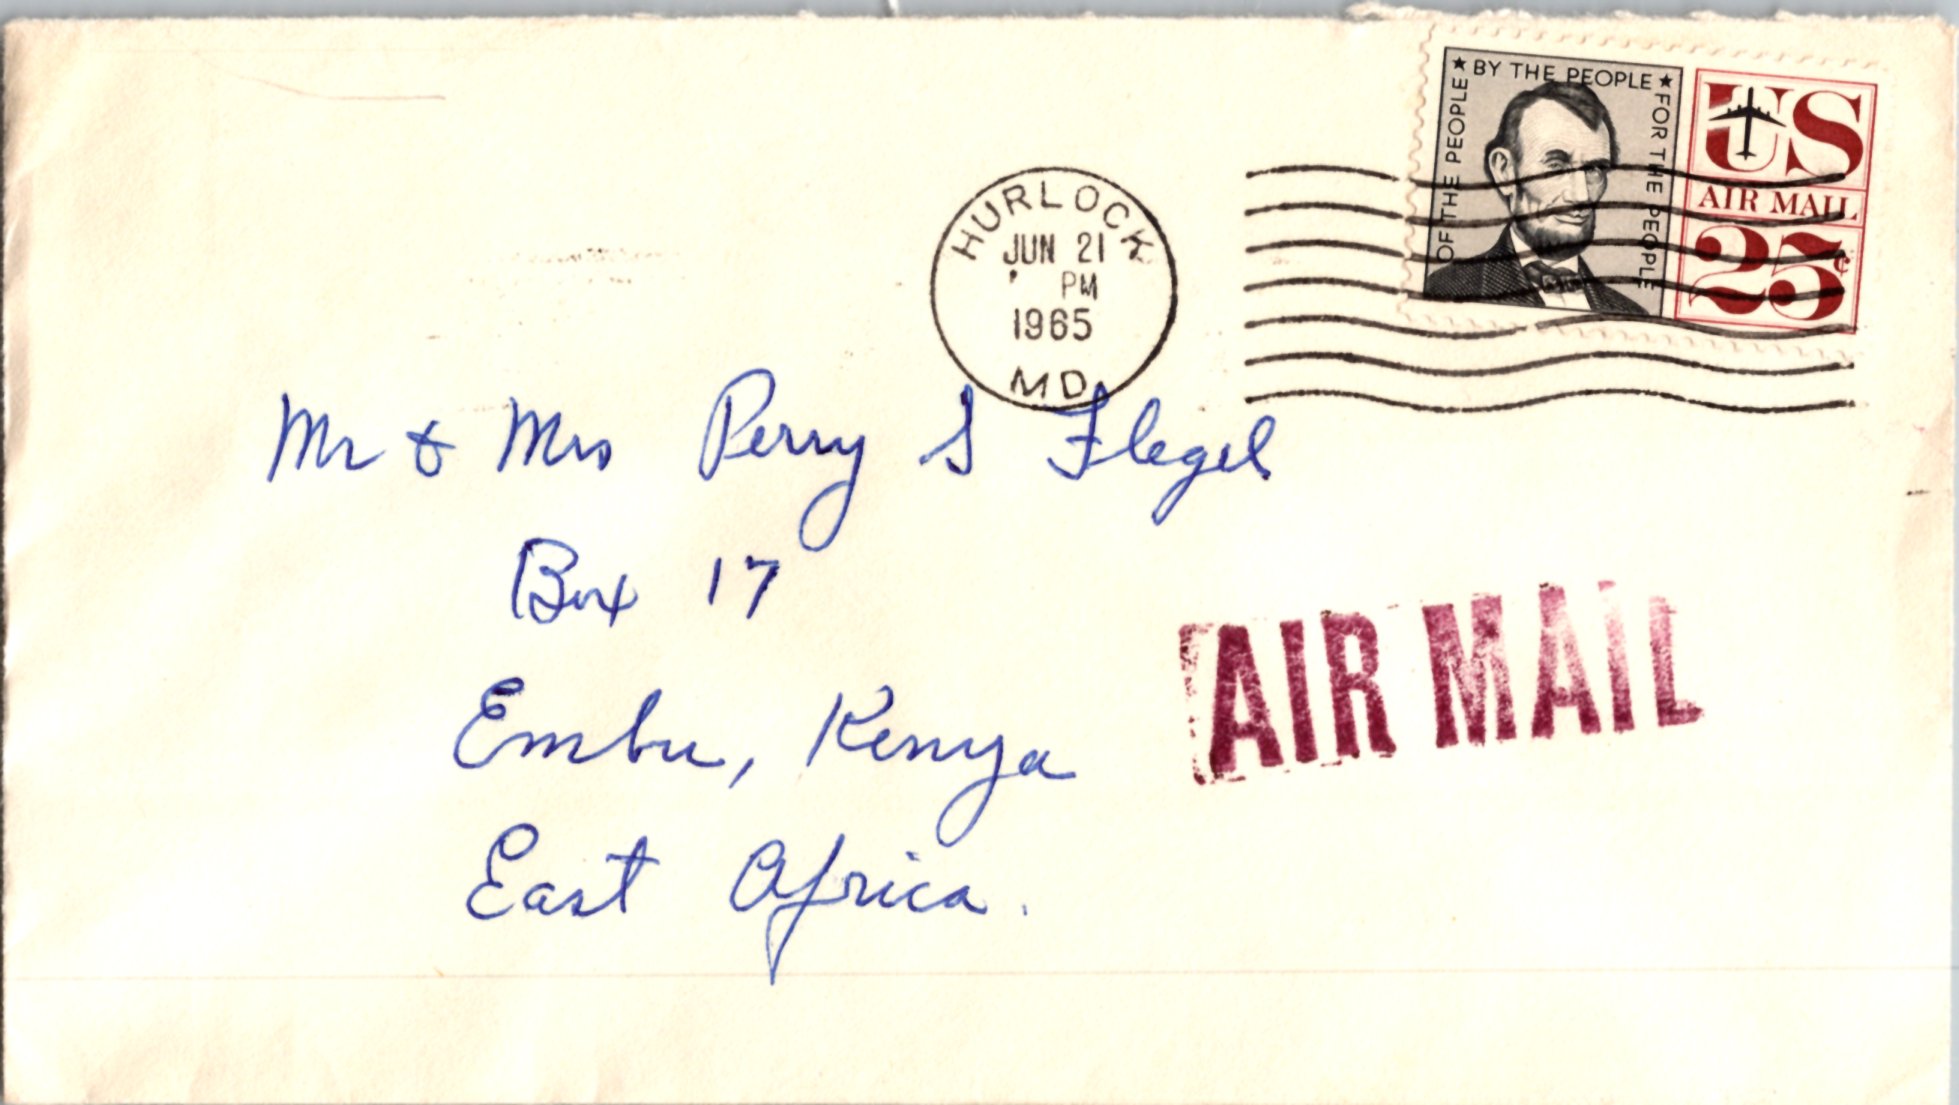 OF THE PEOPLE ★ BY THE PEOPLE ★ FOR THE PEOPLE
US
AIR MAIL
25¢
HURLOCK
JUN 21
PM
1965
MD
Mr & Mrs Perry S Flegel
Box 17
Embu, Kenya
East Africa.
AIR MAIL